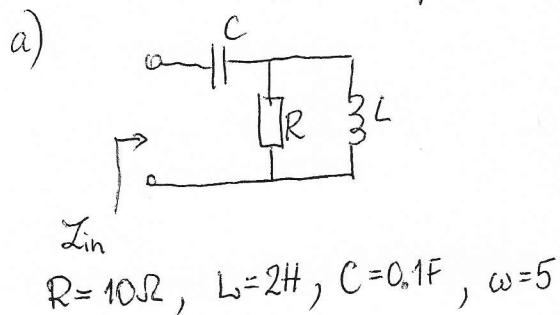 a)
C
R
L
Zin
R=10Ω, L=2H, C=0,1F, ω=5